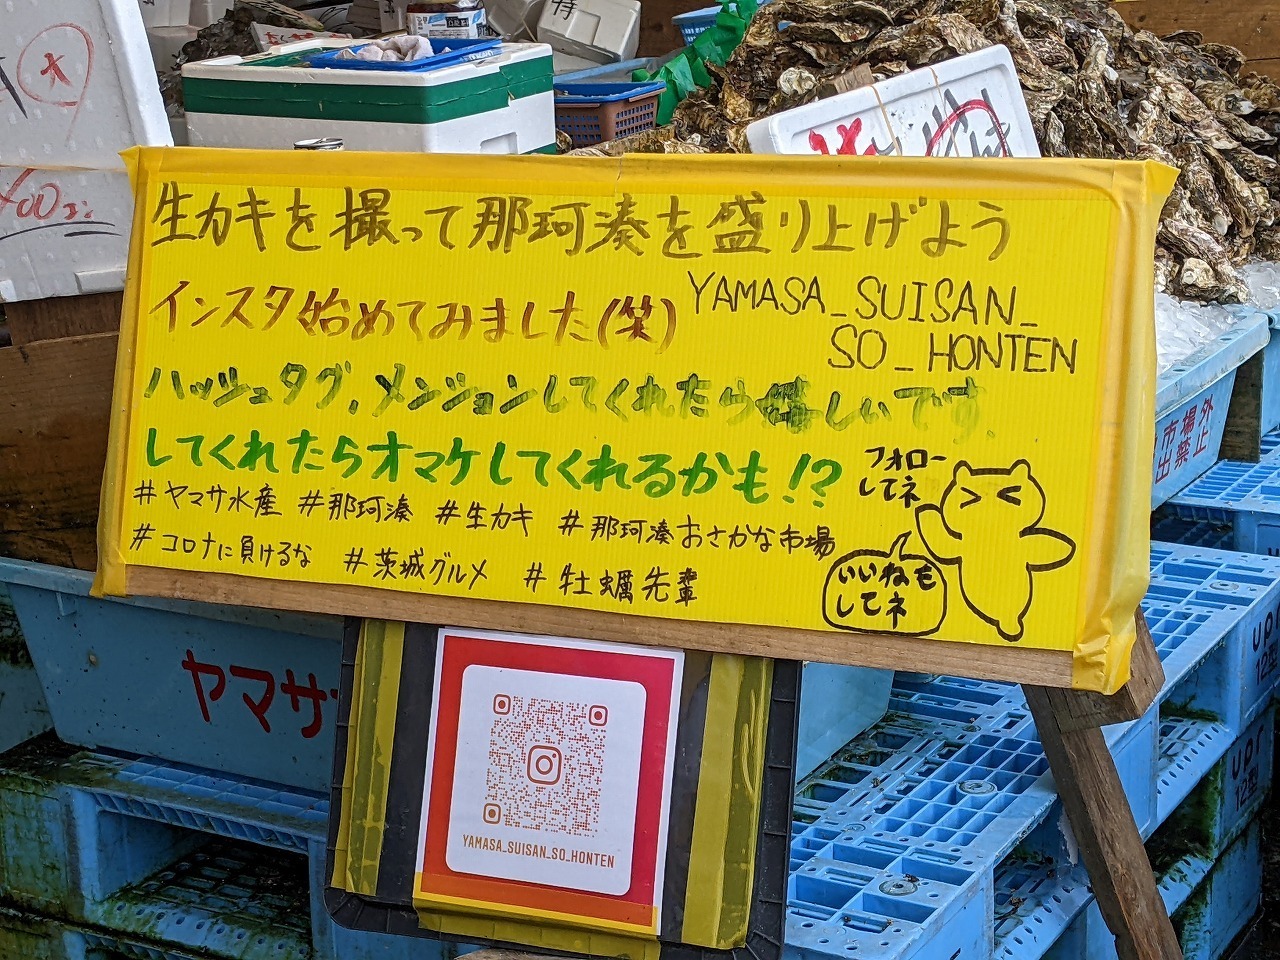 生カキを撮って那珂湊を盛り上げよう
インスタ始めてみました(笑)
YAMASA_SUISAN_
SO_HONTEN
ハッシュタグ、メンションしてくれたら嬉しいです。
してくれたらオマケしてくれるかも!?
フォロー
してネ
#ヤマサ水産 #那珂湊 #生カキ #那珂湊おさかな市場
#コロナに負けるな #茨城グルメ #牡蠣先輩
いいねも
してネ
YAMASA_SUISAN_SO_HONTEN
ヤマサ
市場外
出禁止
upr
12型
upr
12型